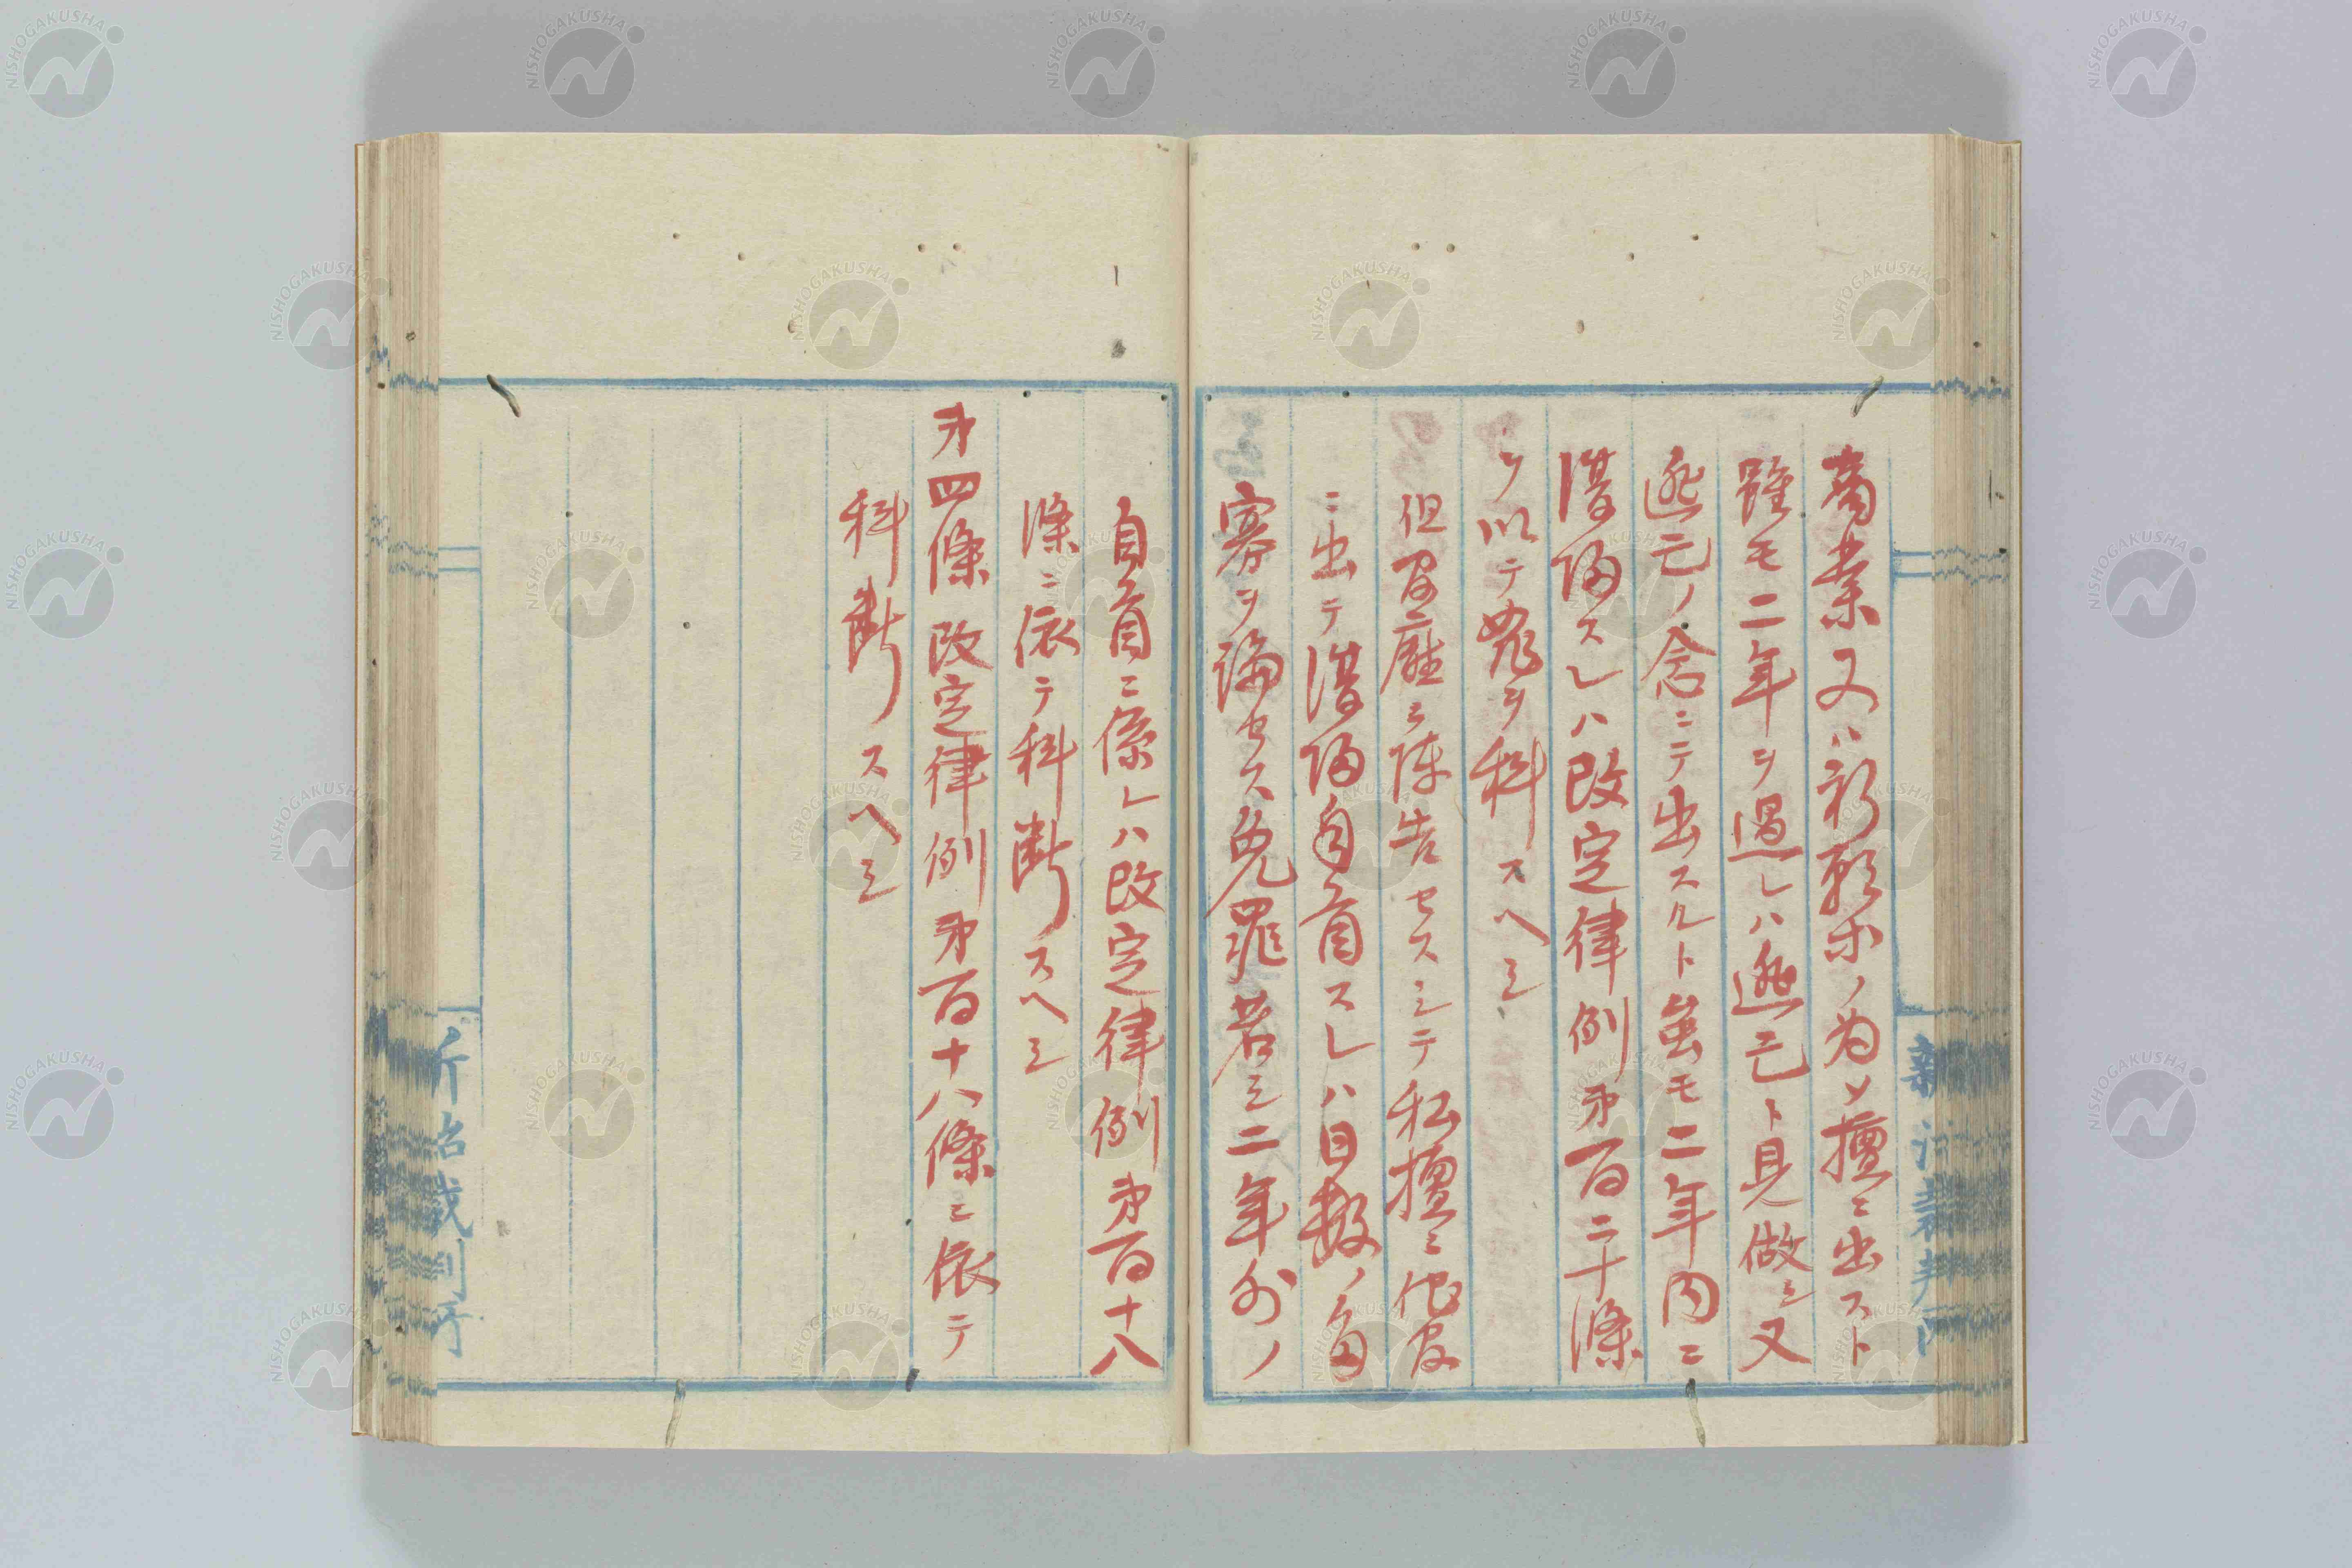 商業又ハ祈願等ノ為メ擅ニ出スト
雖モ二年ヲ過レハ逃亡ト見做シ又
逃亡ノ念ニテ出スルト虽モ二年内ニ
復帰スレハ改定律例第百二十條
ヲ以テ罪ヲ科スヘシ
但官廳ニ陳告セスシテ私擅ニ他官
ニ出テ復帰自首スレハ日数ノ多
寡ヲ論セス免罪若シ二年外ノ
自首ニ係レハ改定律例第百十八
條ニ依テ科断スヘシ
第四條改定律例第百十八條ニ依テ
科断スヘシ
NISHOGAKUSHA